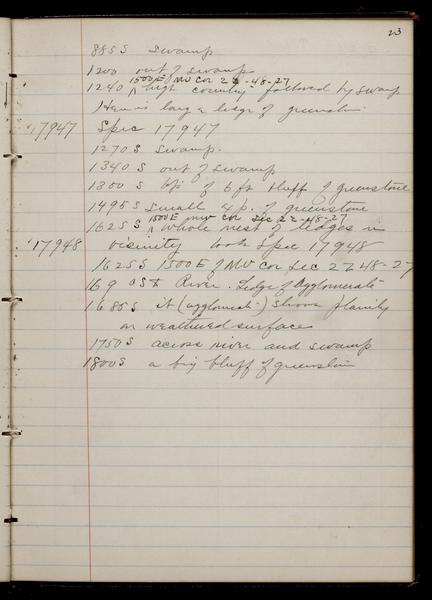 23
885 S swamp
1200 out of swamp
1500 E of NW cor 22-48-27
1240 ^ high country followed by swamp
Here is large ledge of greenstone
17947 Spec 17947
1270 S swamp.
1340 S out of swamp
1300 S top of 6 ft bluff of greenstone
1495 S small of greenstone
1500 E NW cor Sec 22-48-27
1625 S ^ whole nest of ledges in
17948 vicinity took Spec 17948
1625 S 1500 E of NW Cor Sec 22 48-27
River. Ledge of Agglomerate
1685 S it (agglomerate) shows
on weathered surface
1750 S across river and swamp
1800 S a big bluff of greenstone